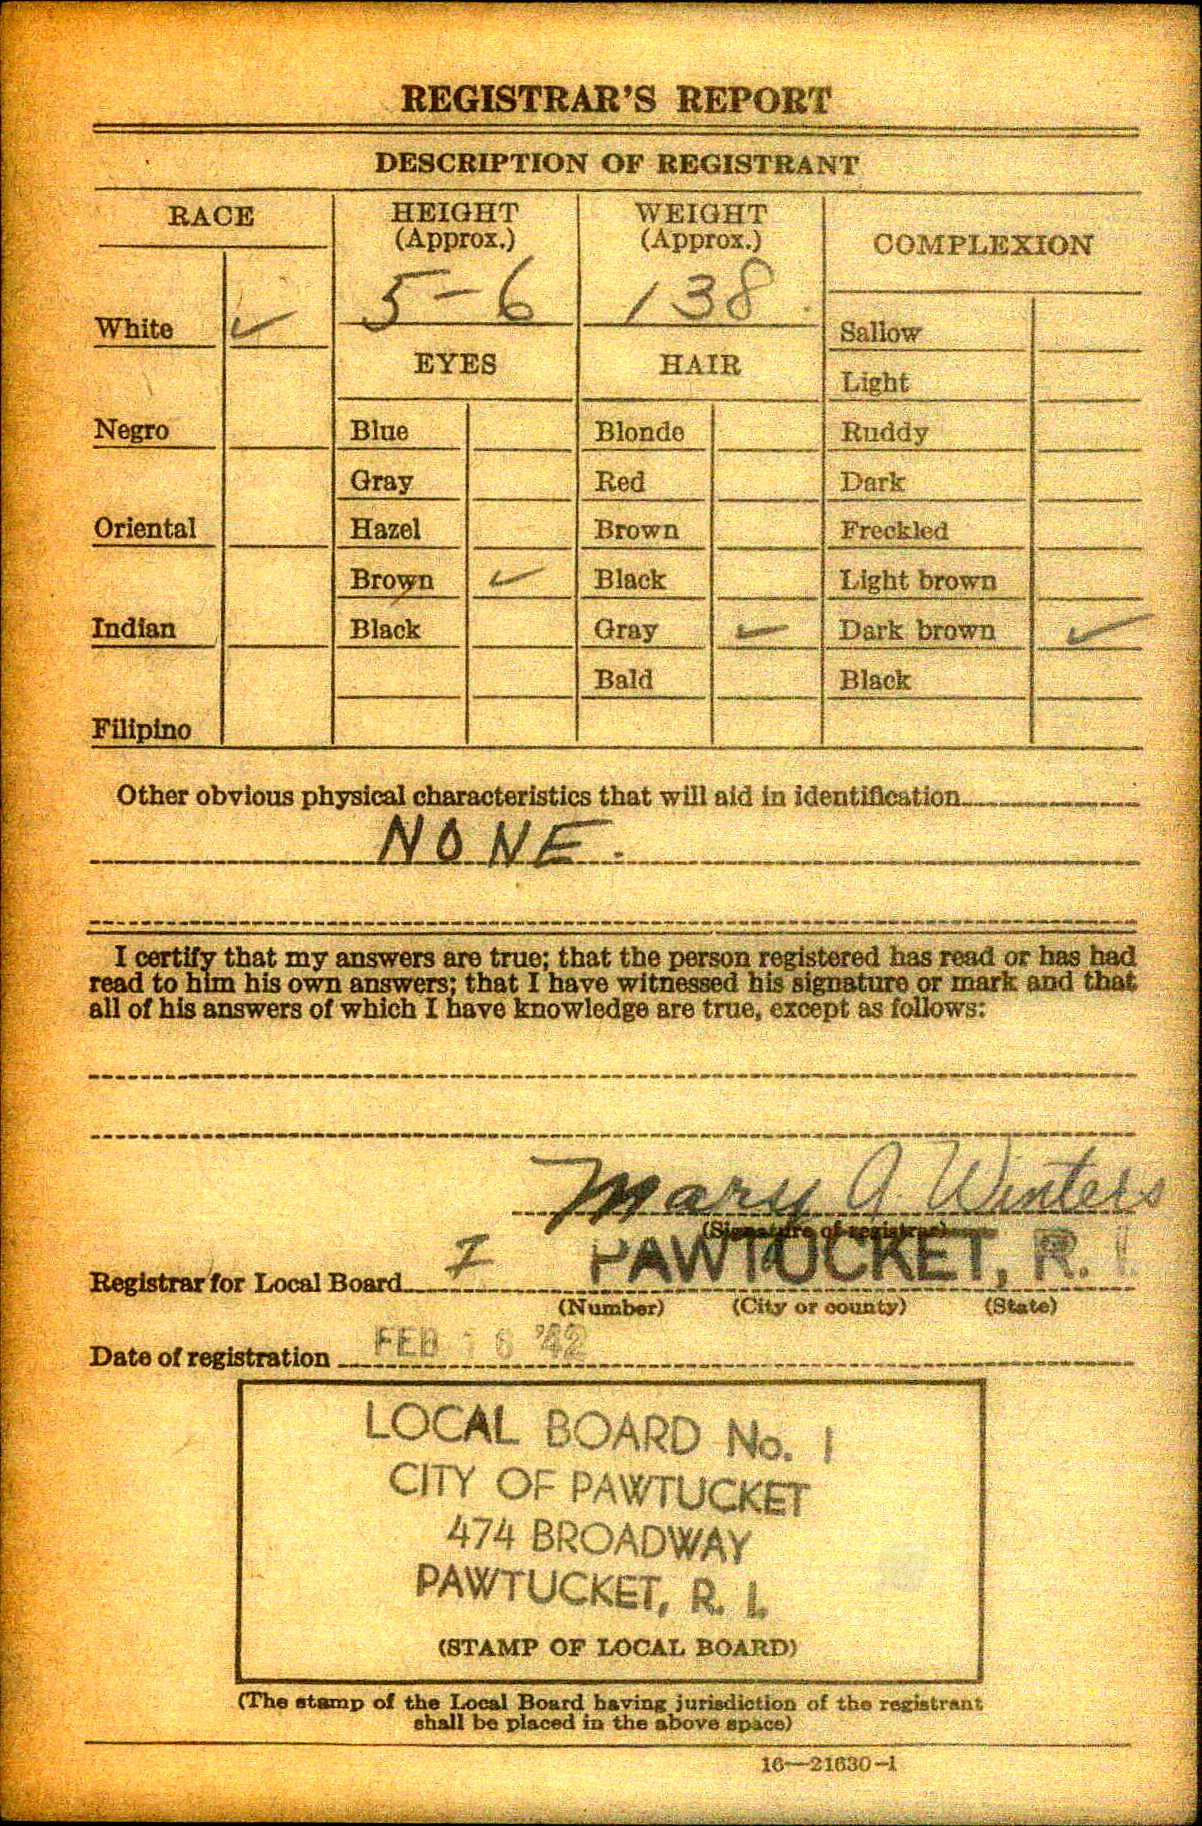 REGISTRAR'S REPORT
DESCRIPTION OF REGISTRANT
RACE
HEIGHT
(Approx.)
WEIGHT
(Approx.)
COMPLEXION
5-6
138
White ✓
Sallow
EYES
HAIR
Light
Negro
Blue
Blonde
Ruddy
Gray
Red
Dark
Oriental
Hazel
Brown
Freckled
Brown ✓
Black
Light brown
Indian
Black
Gray ✓
Dark brown ✓
Bald
Black
Filipino
Other obvious physical characteristics that will aid in identification
NONE.
I certify that my answers are true; that the person registered has read or has had
read to him his own answers; that I have witnessed his signature or mark and that
all of his answers of which I have knowledge are true, except as follows:
Mary A. Winters
(Signature of registrar)
Registrar for Local Board I PAWTUCKET, R. I.
(Number) (City or county) (State)
Date of registration FEB 16 '42
LOCAL BOARD No. 1
CITY OF PAWTUCKET
474 BROADWAY
PAWTUCKET, R. I.
(STAMP OF LOCAL BOARD)
(The stamp of the Local Board having jurisdiction of the registrant
shall be placed in the above space)
16—21630-1